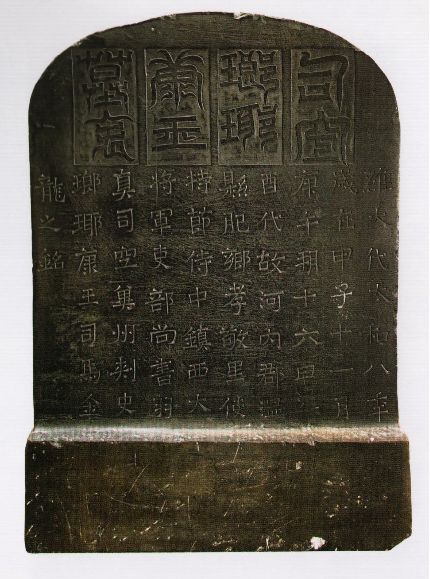 司空瑯琊康王墓表
維大代太和八年
歲在甲子十一月
庚午朔十六日乙
酉代故河內郡溫
縣肥鄉孝敬里使
持節侍中鎮西大
將軍吏部尚書羽
真司空冀州刺史
瑯琊康王司馬金
龍之銘